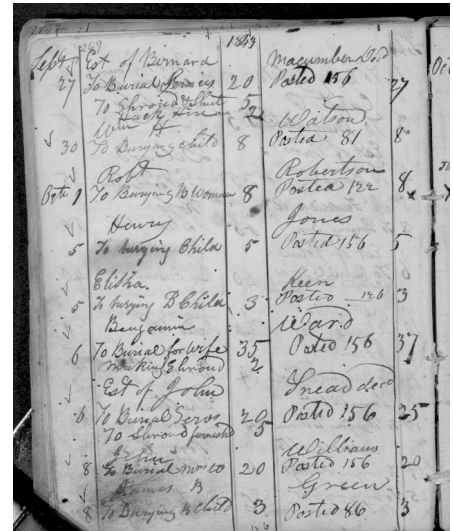 249 1853
Sept Est of Bernard Macumber Decd
27 To Burial Services 20 Posted 156 27
To Shroud & Sheet 5
Hack Hire 2
Wm H. Watson
30 To Burying Child 8 Posted 81 8
Robt Robertson
Octr 1 To Burying B Woman 8 Posted 122 8
Henry Jones
5 To burying Child 5 Posted 156 5
Elisha Keen
5 To burying B Child 3 Posted 126 3
Benjamin Ward
6 To Burial for Wife 35 Posted 156 37
Making Shroud 2
Est of John Snead decd
6 To Burial Servs 20 Posted 156 25
To Shroud furnishd 5
John Williams
8 To Burial 20 Posted 156 20
James B Green
8 To Burying B Child 3 Posted 86 3